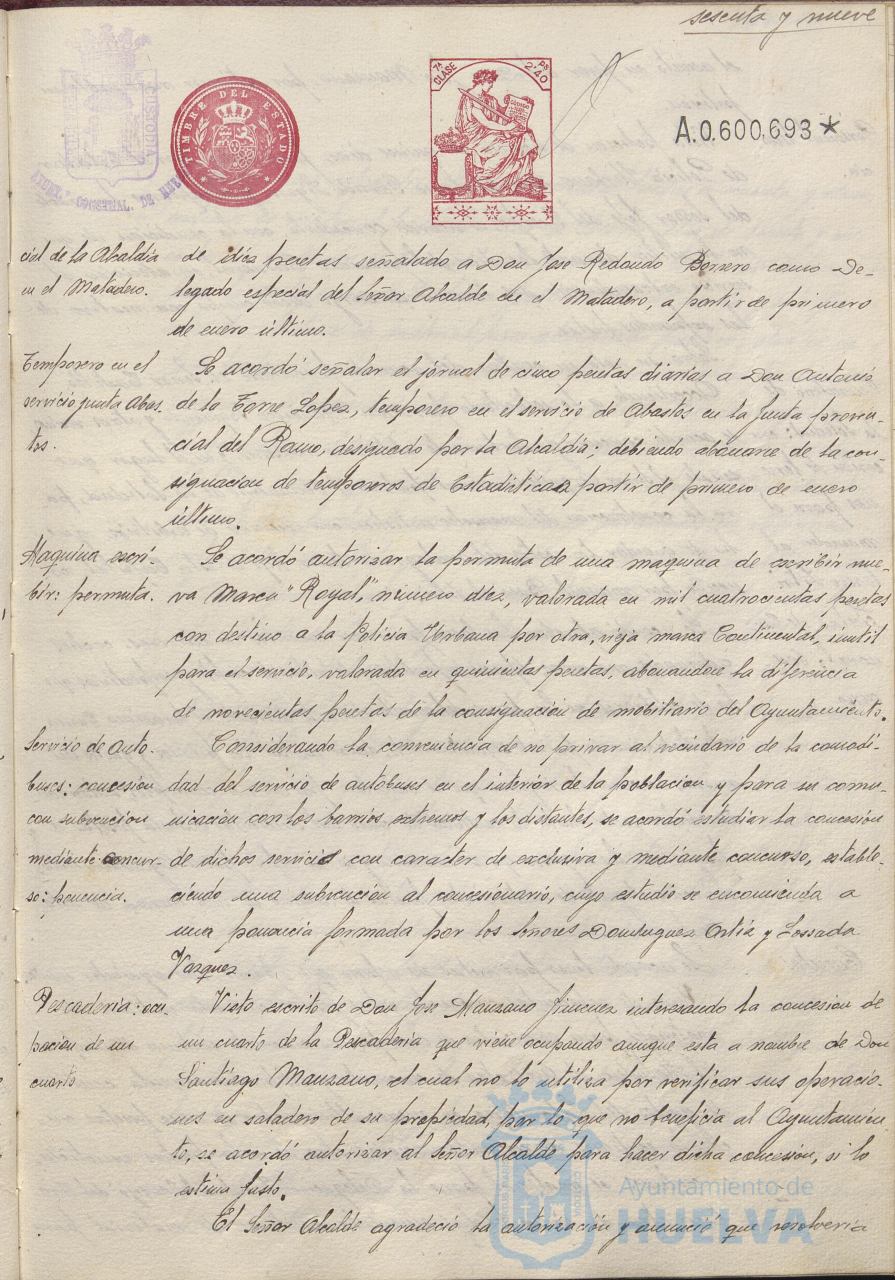 sesenta y nueve
TIMBRE DEL ESTADO
7ª CLASE
Ps 2'40
A.0.600.693*
cial de la Alcaldia
en el Matadero.
de diez pesetas señalado a Don Jose Redondo Borrero como De-
legado especial del Señor Alcalde en el Matadero, a partir de primero
de enero último.
Temporero en el
servicio junta Abas-
tos.
Se acordó señalar el jornal de cinco pesetas diarias a Don Antonio
de la Torre Lopez, temporero en el servicio de Abastos en la Junta provin-
cial del Ramo, designado por la Alcaldía; debiendo abonarse de la con-
signacion de temporeros de Estadistica a partir de primero de enero
último.
Maquina escri-
bir: permuta.
Se acordó autorizar la permuta de una maquina de escribir nue-
va Marca "Royal", número diez, valorada en mil cuatrocientas pesetas
con destino a la Policia Urbana por otra, vieja marca Continental, inutil
para el servicio, valorada en quinientas pesetas, abonandose la diferencia
de novecientas pesetas de la consignacion de mobiliario del Ayuntamiento.
Servicio de auto-
buses: concesion
con subvencion
mediante concur-
so: ponencia.
Considerando la conveniencia de no privar al vecindario de la comodi-
dad del servicio de autobuses en el interior de la poblacion y para su comu-
nicación con los barrios extremos y los distantes, se acordó estudiar la concesion
de dichos servicios con caracter de exclusiva y mediante concurso, estable-
ciendo una subvencion al concesionario, cuyo estudio se encomienda a
una ponencia formada por los señores Dominguez Ortiz y Lossada
Vazquez.
Pescaderia: ocu-
pacion de un
cuarto
Visto escrito de Don Jose Manzano Jimenez interesando la concesion de
un cuarto de la Pescaderia que viene ocupando aunque esta a nombre de Don
Santiago Manzano, el cual no lo utiliza por verificar sus operacio-
nes en saladero de su propiedad, por lo que no beneficia al Ayuntamien-
to, se acordó autorizar al Señor Alcalde para hacer dicha concesión, si lo
estima justo.
El Señor Alcalde agradeció la autorización y anunció que resolveria
Ayuntamiento de
HUELVA